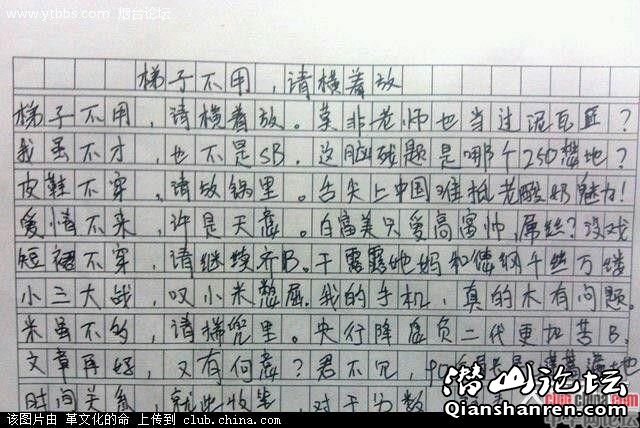 www.ytbbs.com 烟台论坛
梯子不用,请横着放
梯子不用,请横着放。莫非老师也当过泥瓦匠?
我虽不才,也不是SB。这脑残题是哪个250想地?
皮鞋不穿,请放锅里。舌尖上中国难抵老酸奶魅力!
爱情不来,许是天意。白富美只爱高富帅,屌丝?没戏
短裙不穿,请继续齐B。干露露她妈和 千丝万缕
小三大战,叹小米憋屈。我的手机,真的木有问题。
米虽不多,请 兜里。央行降息负二代更加苦B。
文章再好,又有何意?君不见,90后
时间关系,就此收笔,对于分数
潜山论坛
Qianshanren.com
club.china.com
该图片由 革文化的命 上传到 club.china.com